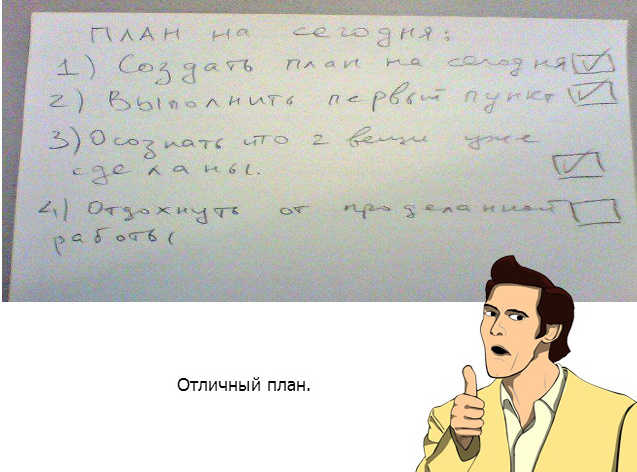 ПЛАН на сегодня:
1) Создать план на сегодня
2) Выполнить первый пункт
3) Осознать что 2 вещи уже
сделаны.
4) Отдохнуть от проделанной
работы
Отличный план.